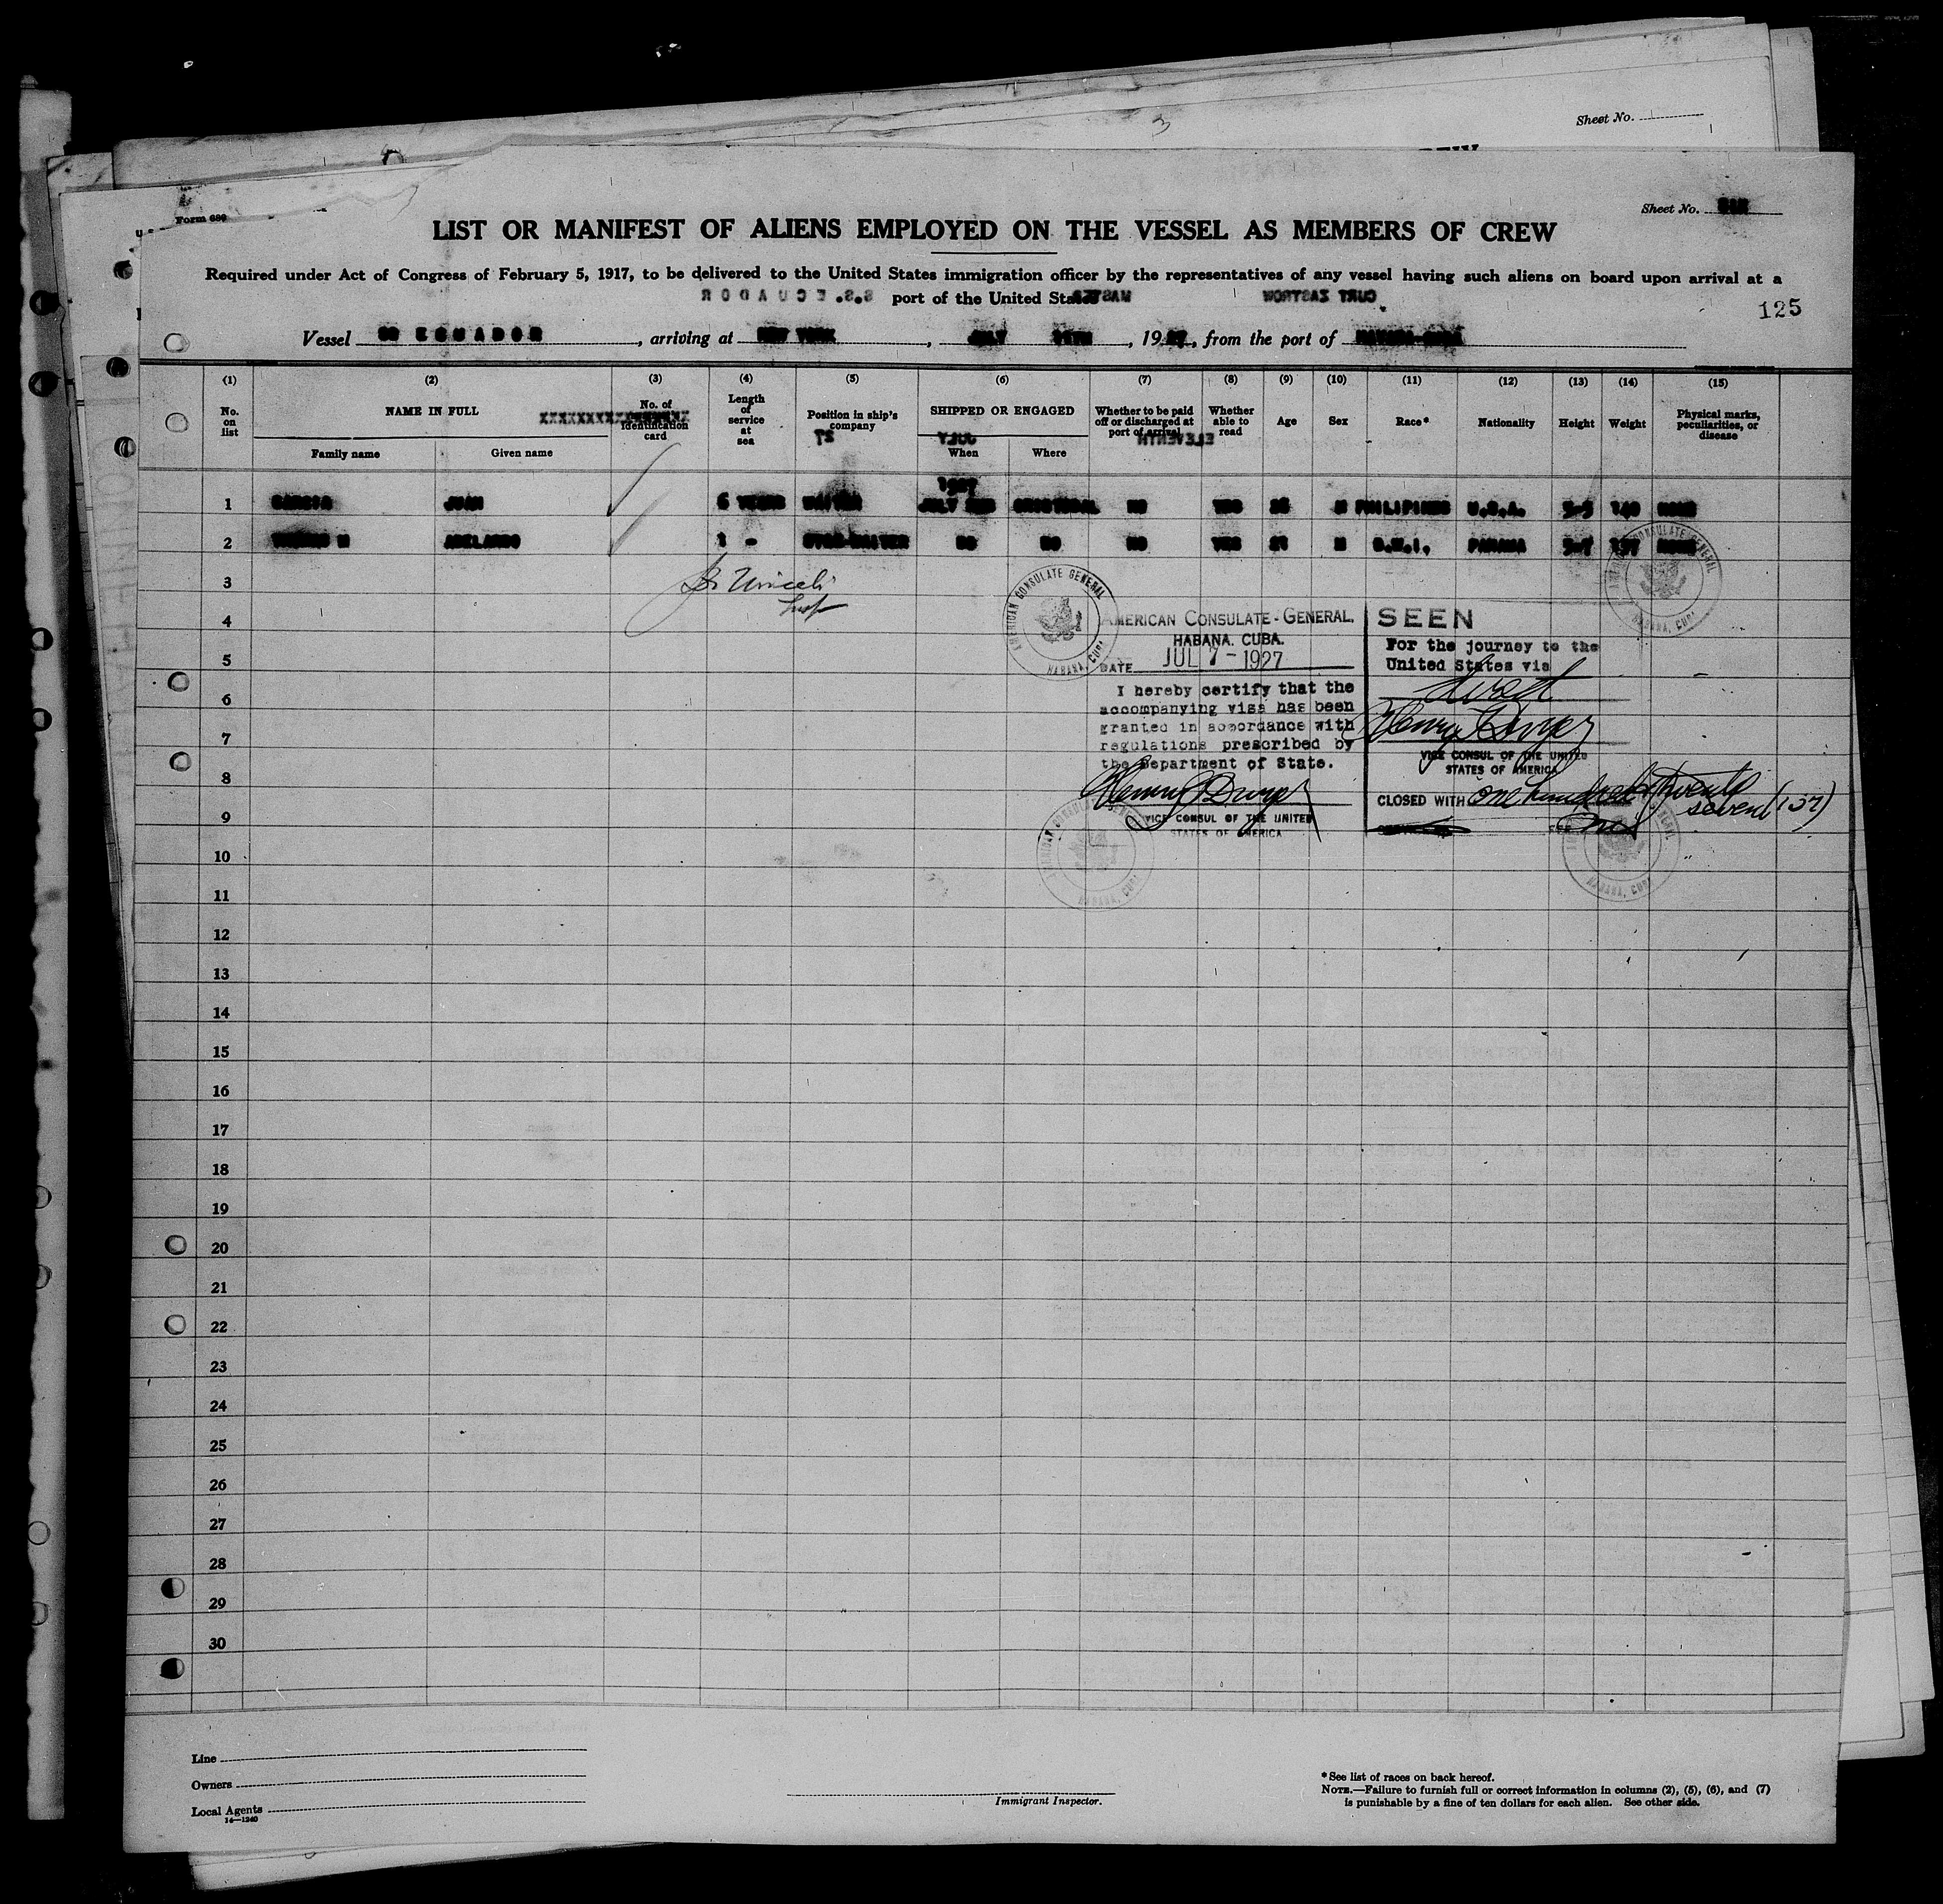 Sheet No.
Form 680
Sheet No. SIX
LIST OR MANIFEST OF ALIENS EMPLOYED ON THE VESSEL AS MEMBERS OF CREW
Required under Act of Congress of February 5, 1917, to be delivered to the United States immigration officer by the representatives of any vessel having such aliens on board upon arrival at a
port of the United States
S.S. ECUADOR MASTER CURT ZASTROW
125
Vessel SS ECUADOR, arriving at NEW YORK, JULY, 1927, from the port of HAVANA-CUBA
(1) (2) (3) (4) (5) (6) (7) (8) (9) (10) (11) (12) (13) (14) (15)
No. on list
NAME IN FULL
Family name Given name
XXXXXXXXXXXXXXXX
No. of identification card
Length of service at sea
Position in ship's company
27
SHIPPED OR ENGAGED
JULY
When Where
Whether to be paid off or discharged at port of arrival
ELEVENTH
Whether able to read
Age
Sex
Race*
Nationality
Height
Weight
Physical marks, peculiarities, or disease
1927
1 GARCIA JUAN 6 YEARS WAITER JULY CRISTOBAL NO YES M PHILIPINES U.S.A. 5-5 140 NONE
2 THOMAS M ABELARDO 1 - STGR-WAITER DO DO NO YES 21 M B.W.I. PANAMA 5-7 157 NONE
3
4
5
6
7
8
9
10
11
12
13
14
15
16
17
18
19
20
21
22
23
24
25
26
27
28
29
30
Insp
AMERICAN CONSULATE GENERAL HABANA, CUBA
AMERICAN CONSULATE-GENERAL.
HABANA. CUBA.
DATE JUL 7 - 1927
I hereby certify that the
accompanying visa has been
granted in accordance with
regulations prescribed by
the Department of State.
VICE CONSUL OF THE UNITED
STATES OF AMERICA
AMERICAN CONSULATE GENERAL HABANA, CUBA
SEEN
For the journey to the
United States via
direct
VICE CONSUL OF THE UNITED
STATES OF AMERICA
CLOSED WITH one hundred twenty
seven (127)
AMERICAN CONSULATE GENERAL HABANA, CUBA
AMERICAN CONSULATE GENERAL HABANA, CUBA
Line
Owners
Local Agents
14—1240
Immigrant Inspector.
*See list of races on back hereof.
NOTE.—Failure to furnish full or correct information in columns (2), (5), (6), and (7)
is punishable by a fine of ten dollars for each alien. See other side.